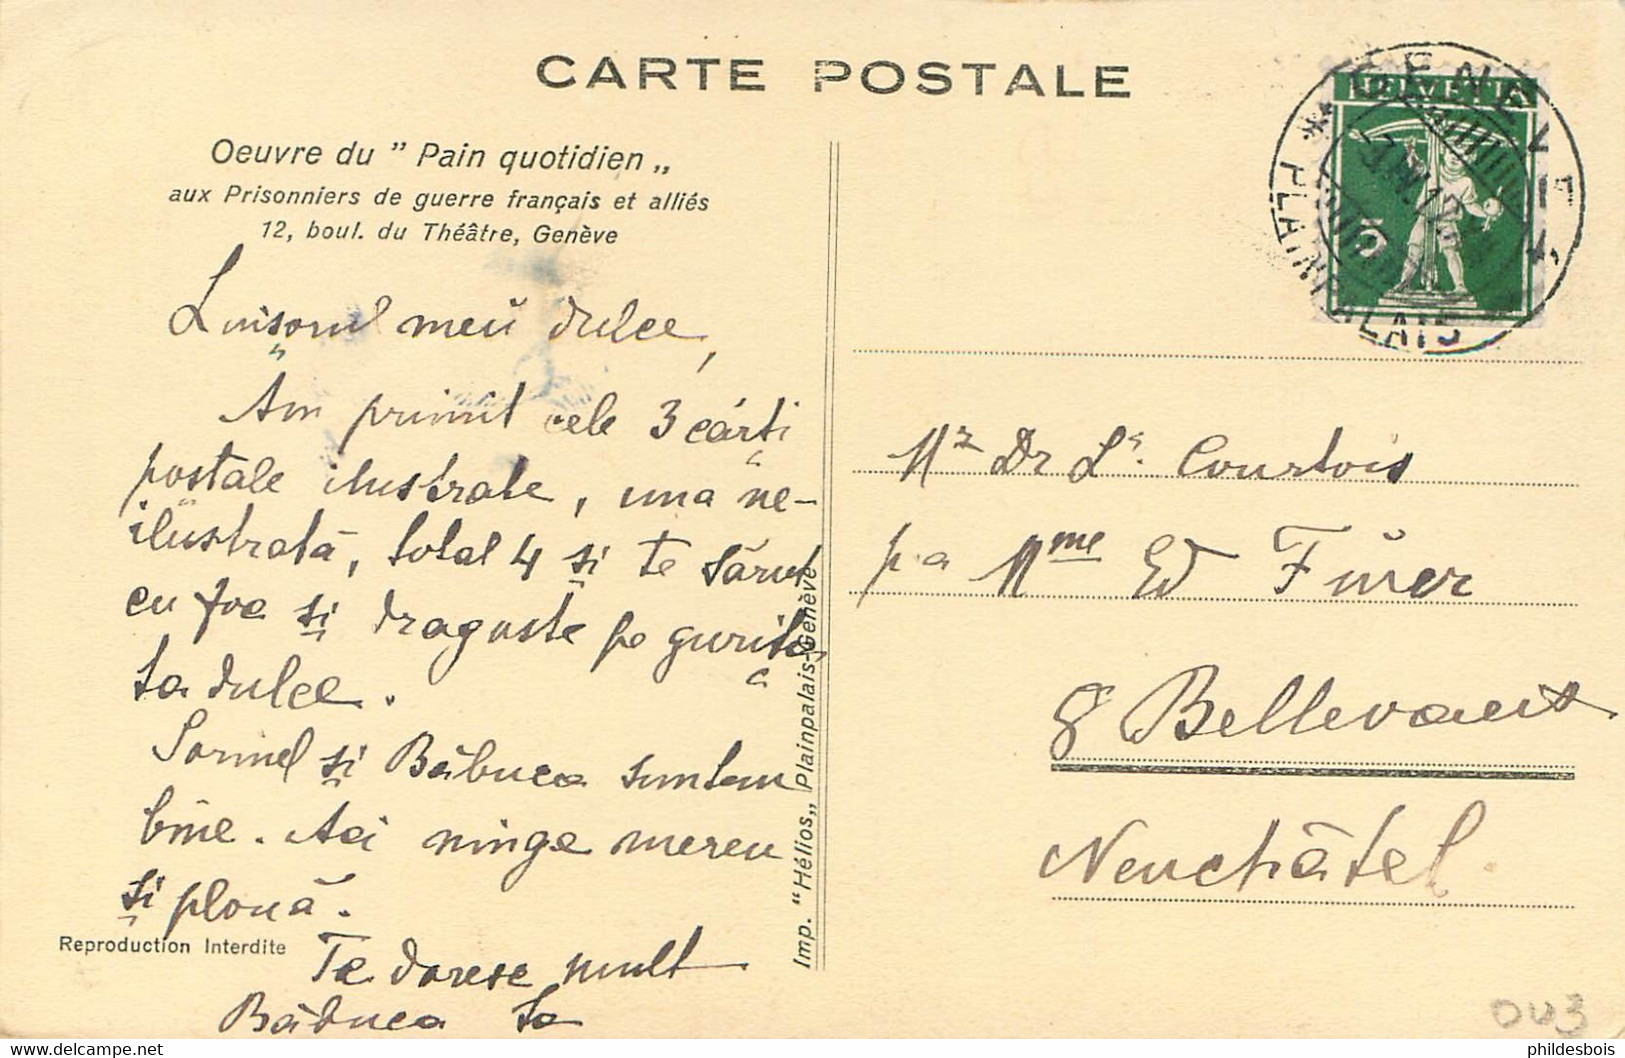 CARTE POSTALE
Oeuvre du " Pain quotidien „
aux Prisonniers de guerre français et alliés
12, boul. du Théâtre, Genève
meŭ dulce,
Am primit cele 3 cárți
postale ilustrate, una ne-
ilustrată, total 4 și te sărut
cu foc și dragoste pe gurița
ta dulce.
și Băbuca suntem
bine. Aci ninge mereu
și plouă.
Te doresc mult
Băbuca ta
Reproduction Interdite
Imp. "Hélios„ Plainpalais-Genève
HELVETIA
5
GENÈVE
PLAINPALAIS
Mr Dr Ls. Courtois
pa Mme Ed Fürer
8 Bellevaux
Neuchâtel.
phildesbois